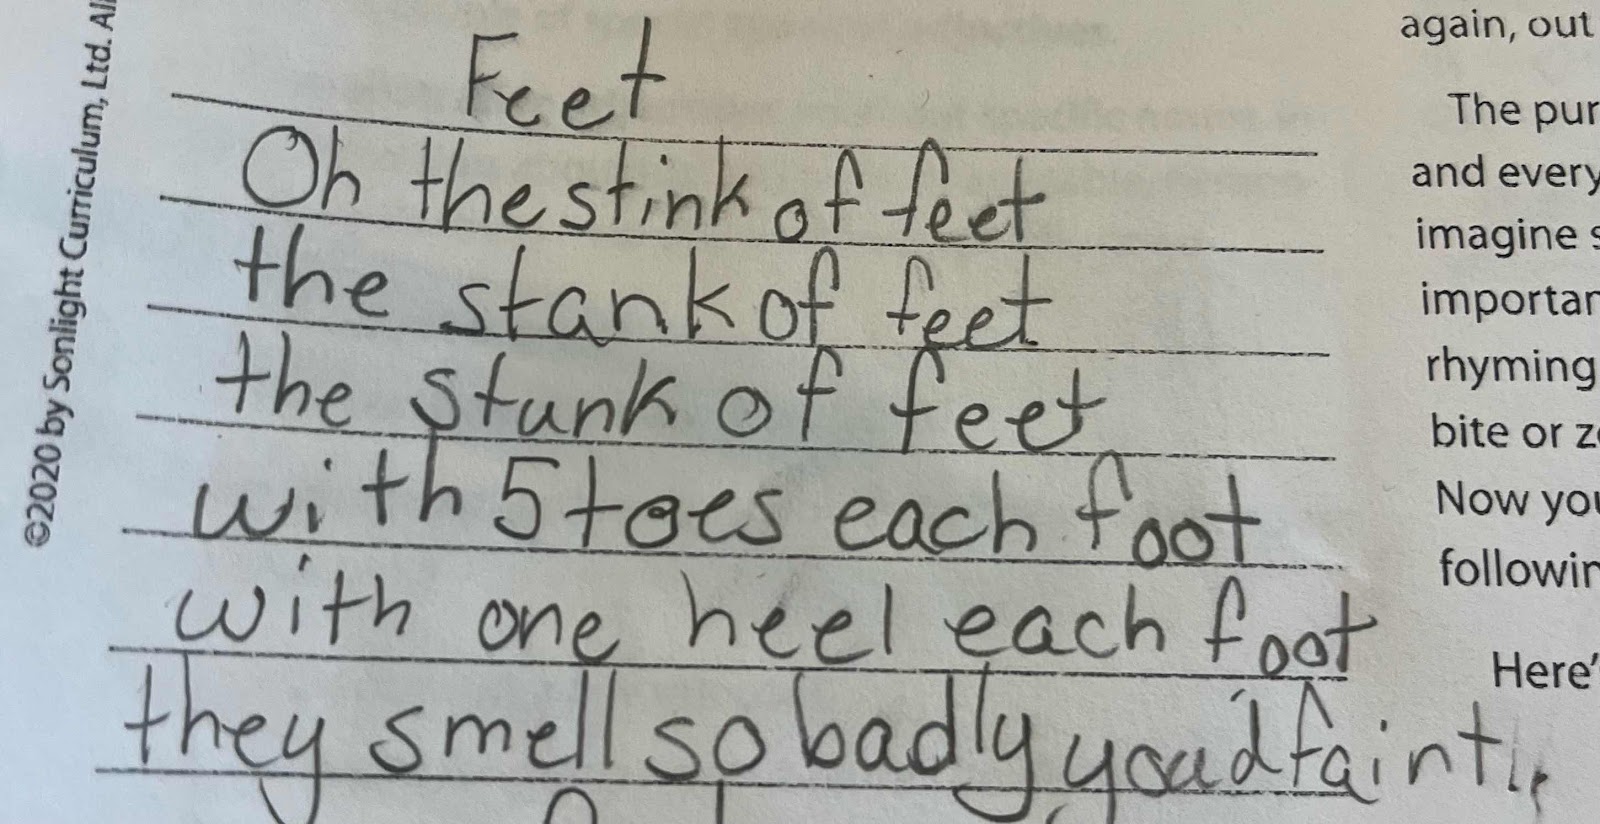 ©2020 by Sonlight Curriculum, Ltd. All
Feet
Oh the stink of feet
the stank of feet
the stunk of feet
with 5 toes each foot
with one heel each foot
they smell so badly you'd faint
again, out
The pur
and every
imagine s
importan
rhyming
bite or z
Now you
followin
Here'